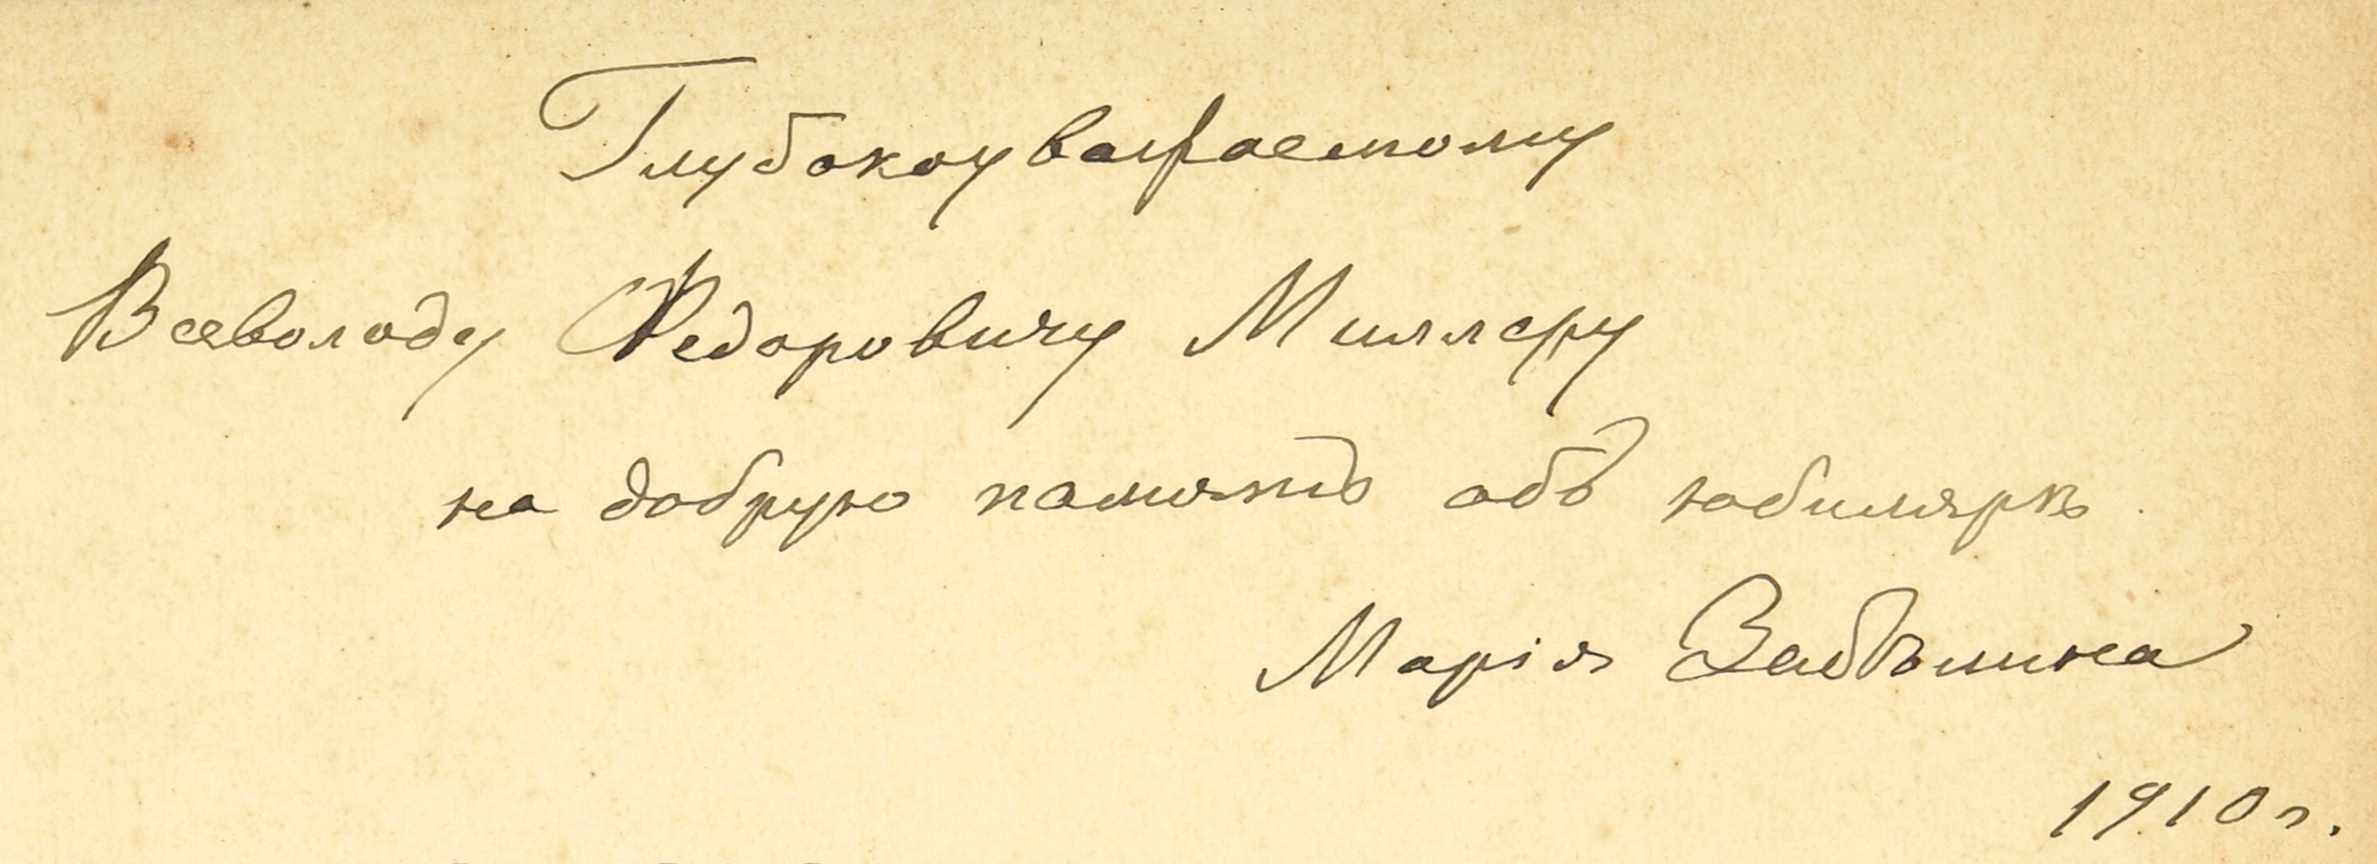 Глубокоуважаемому
Всеволоду Федоровичу Миллеру
на добрую память объ юбилярѣ.
Марія Забѣлина
1910 г.